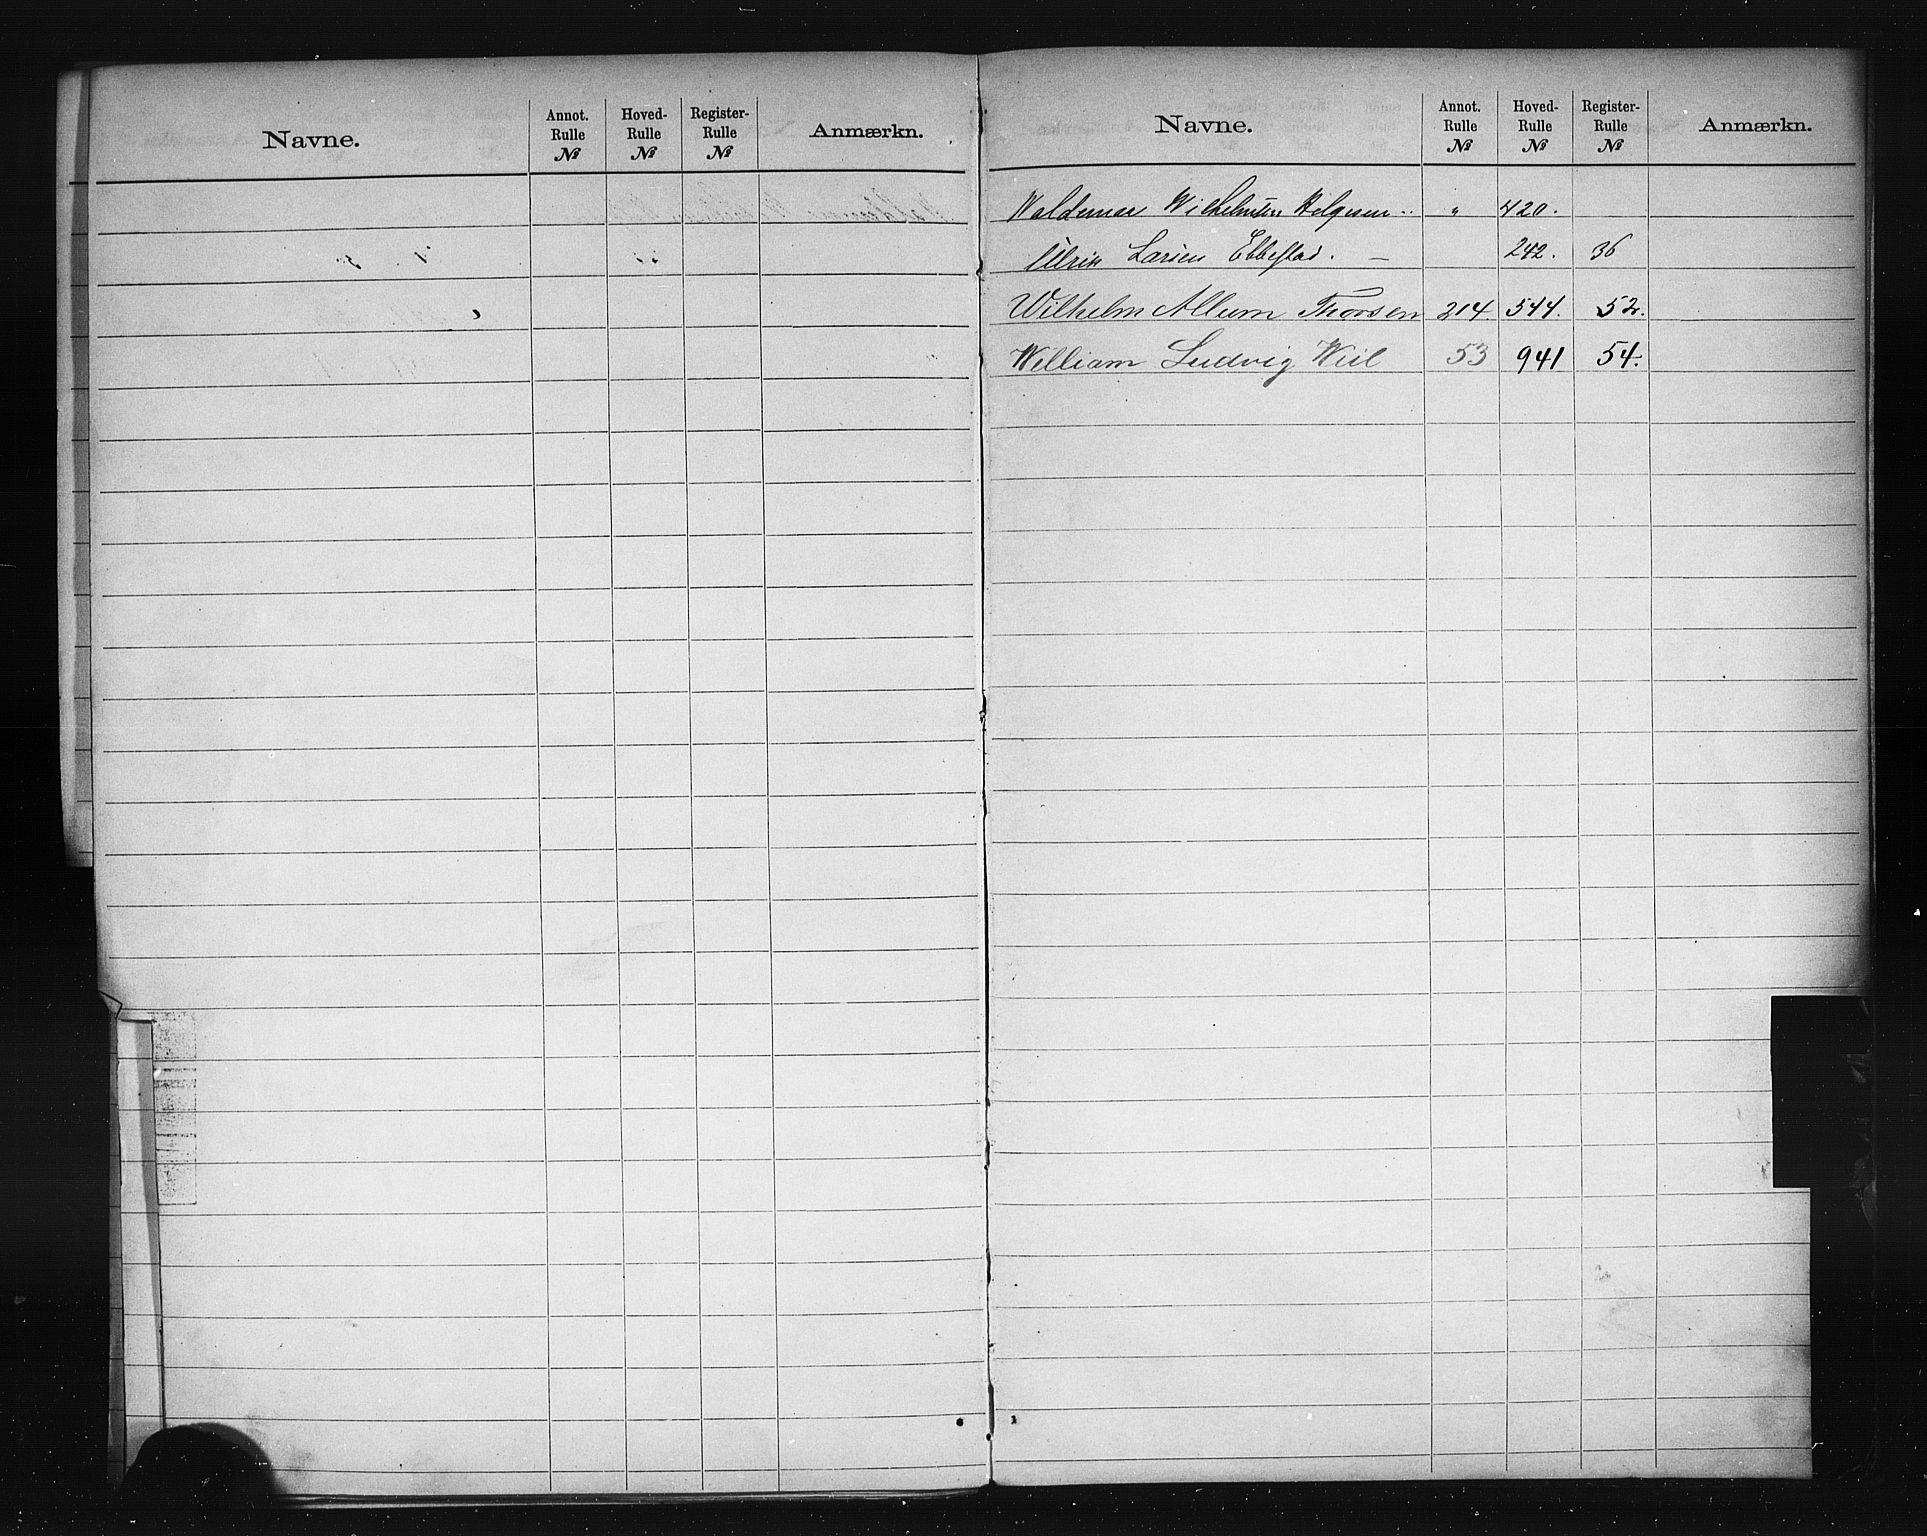 Navne. Annot. Rulle № Hoved-Rulle № Register-Rulle № Anmærkn.
Navne. Annot. Rulle № Hoved-Rulle № Register-Rulle № Anmærkn.
Waldemar Wilhelm Helgesen " 420.
Ulrik Larsen Ebbestad. — 242. 36
Wilhelm Allum Thorsen 214. 544. 52.
William Ludvig Wiel 53 941 54.